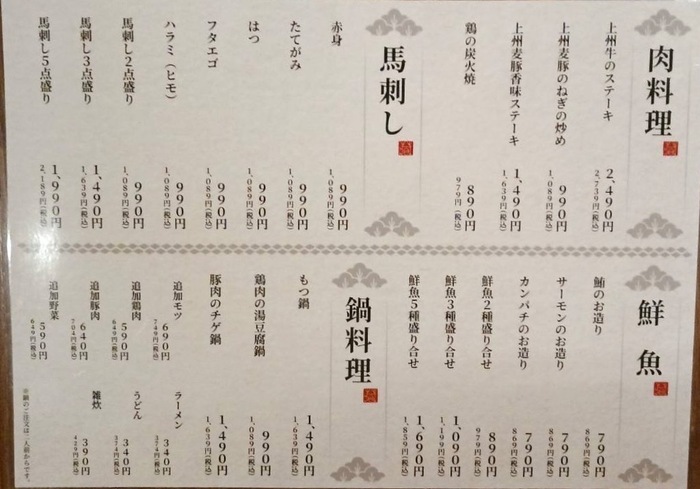 肉料理
上州牛のステーキ
2,490円
2,739円(税込)
上州麦豚のねぎの炒め
990円
1,089円(税込)
上州麦豚香味ステーキ
1,490円
1,639円(税込)
鶏の炭火焼
890円
979円(税込)
馬刺し
赤身
990円
1,089円(税込)
たてがみ
990円
1,089円(税込)
はつ
990円
1,089円(税込)
フタエゴ
990円
1,089円(税込)
ハラミ(ヒモ)
990円
1,089円(税込)
馬刺し2点盛り
990円
1,089円(税込)
馬刺し3点盛り
1,490円
1,639円(税込)
馬刺し5点盛り
1,990円
2,189円(税込)
鮮魚
鮪のお造り
790円
869円(税込)
サーモンのお造り
790円
869円(税込)
カンパチのお造り
790円
869円(税込)
鮮魚2種盛り合せ
890円
979円(税込)
鮮魚3種盛り合せ
1,090円
1,199円(税込)
鮮魚5種盛り合せ
1,690円
1,859円(税込)
鍋料理
もつ鍋
1,490円
1,639円(税込)
鶏肉の湯豆腐鍋
990円
1,089円(税込)
豚肉のチゲ鍋
1,490円
1,639円(税込)
追加モツ
690円
749円(税込)
ラーメン
340円
374円(税込)
追加鶏肉
590円
649円(税込)
うどん
340円
374円(税込)
追加豚肉
640円
704円(税込)
雑炊
390円
429円(税込)
追加野菜
590円
649円(税込)
※鍋のご注文は二人前からです。